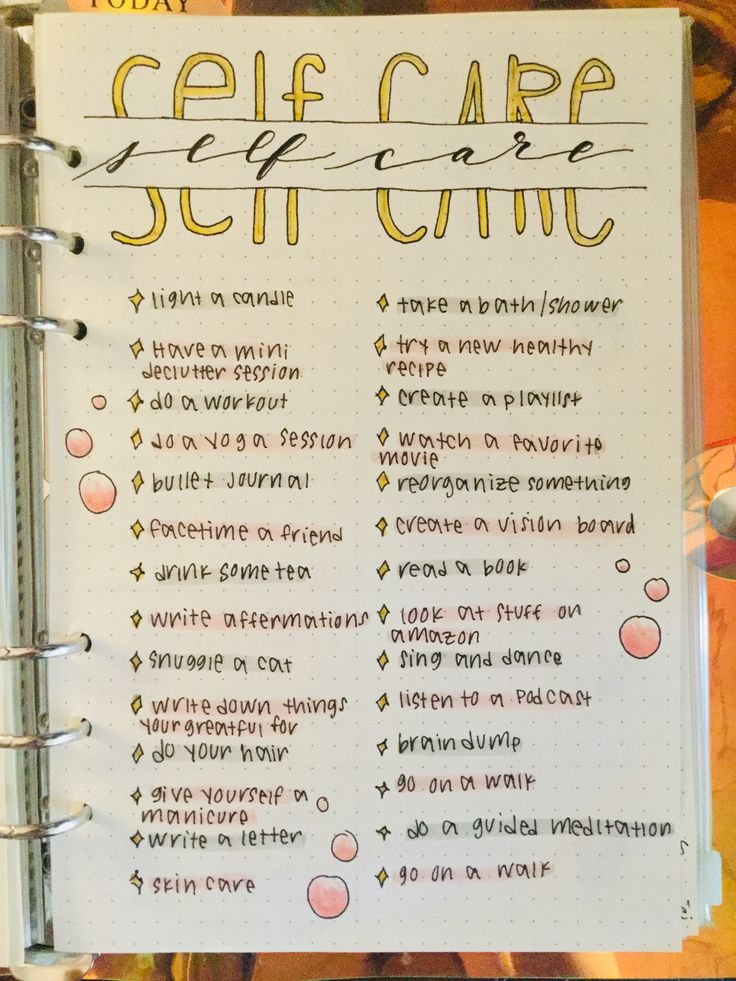 TODAY
self CARe
self care
light a candle
Have a mini
declutter session
do a workout
do a yoga session
bullet journal
facetime a friend
drink some tea
write affermations
snuggle a cat
write down things
your greatful for
do your hair
give yourself a
manicure
write a letter
skin care
take a bath/shower
try a new healthy
recipe
create a playlist
watch a favorite
movie
reorganize something
create a vision board
read a book
look at stuff on
amazon
sing and dance
listen to a podcast
braindump
go on a walk
do a guided meditation
go on a walk